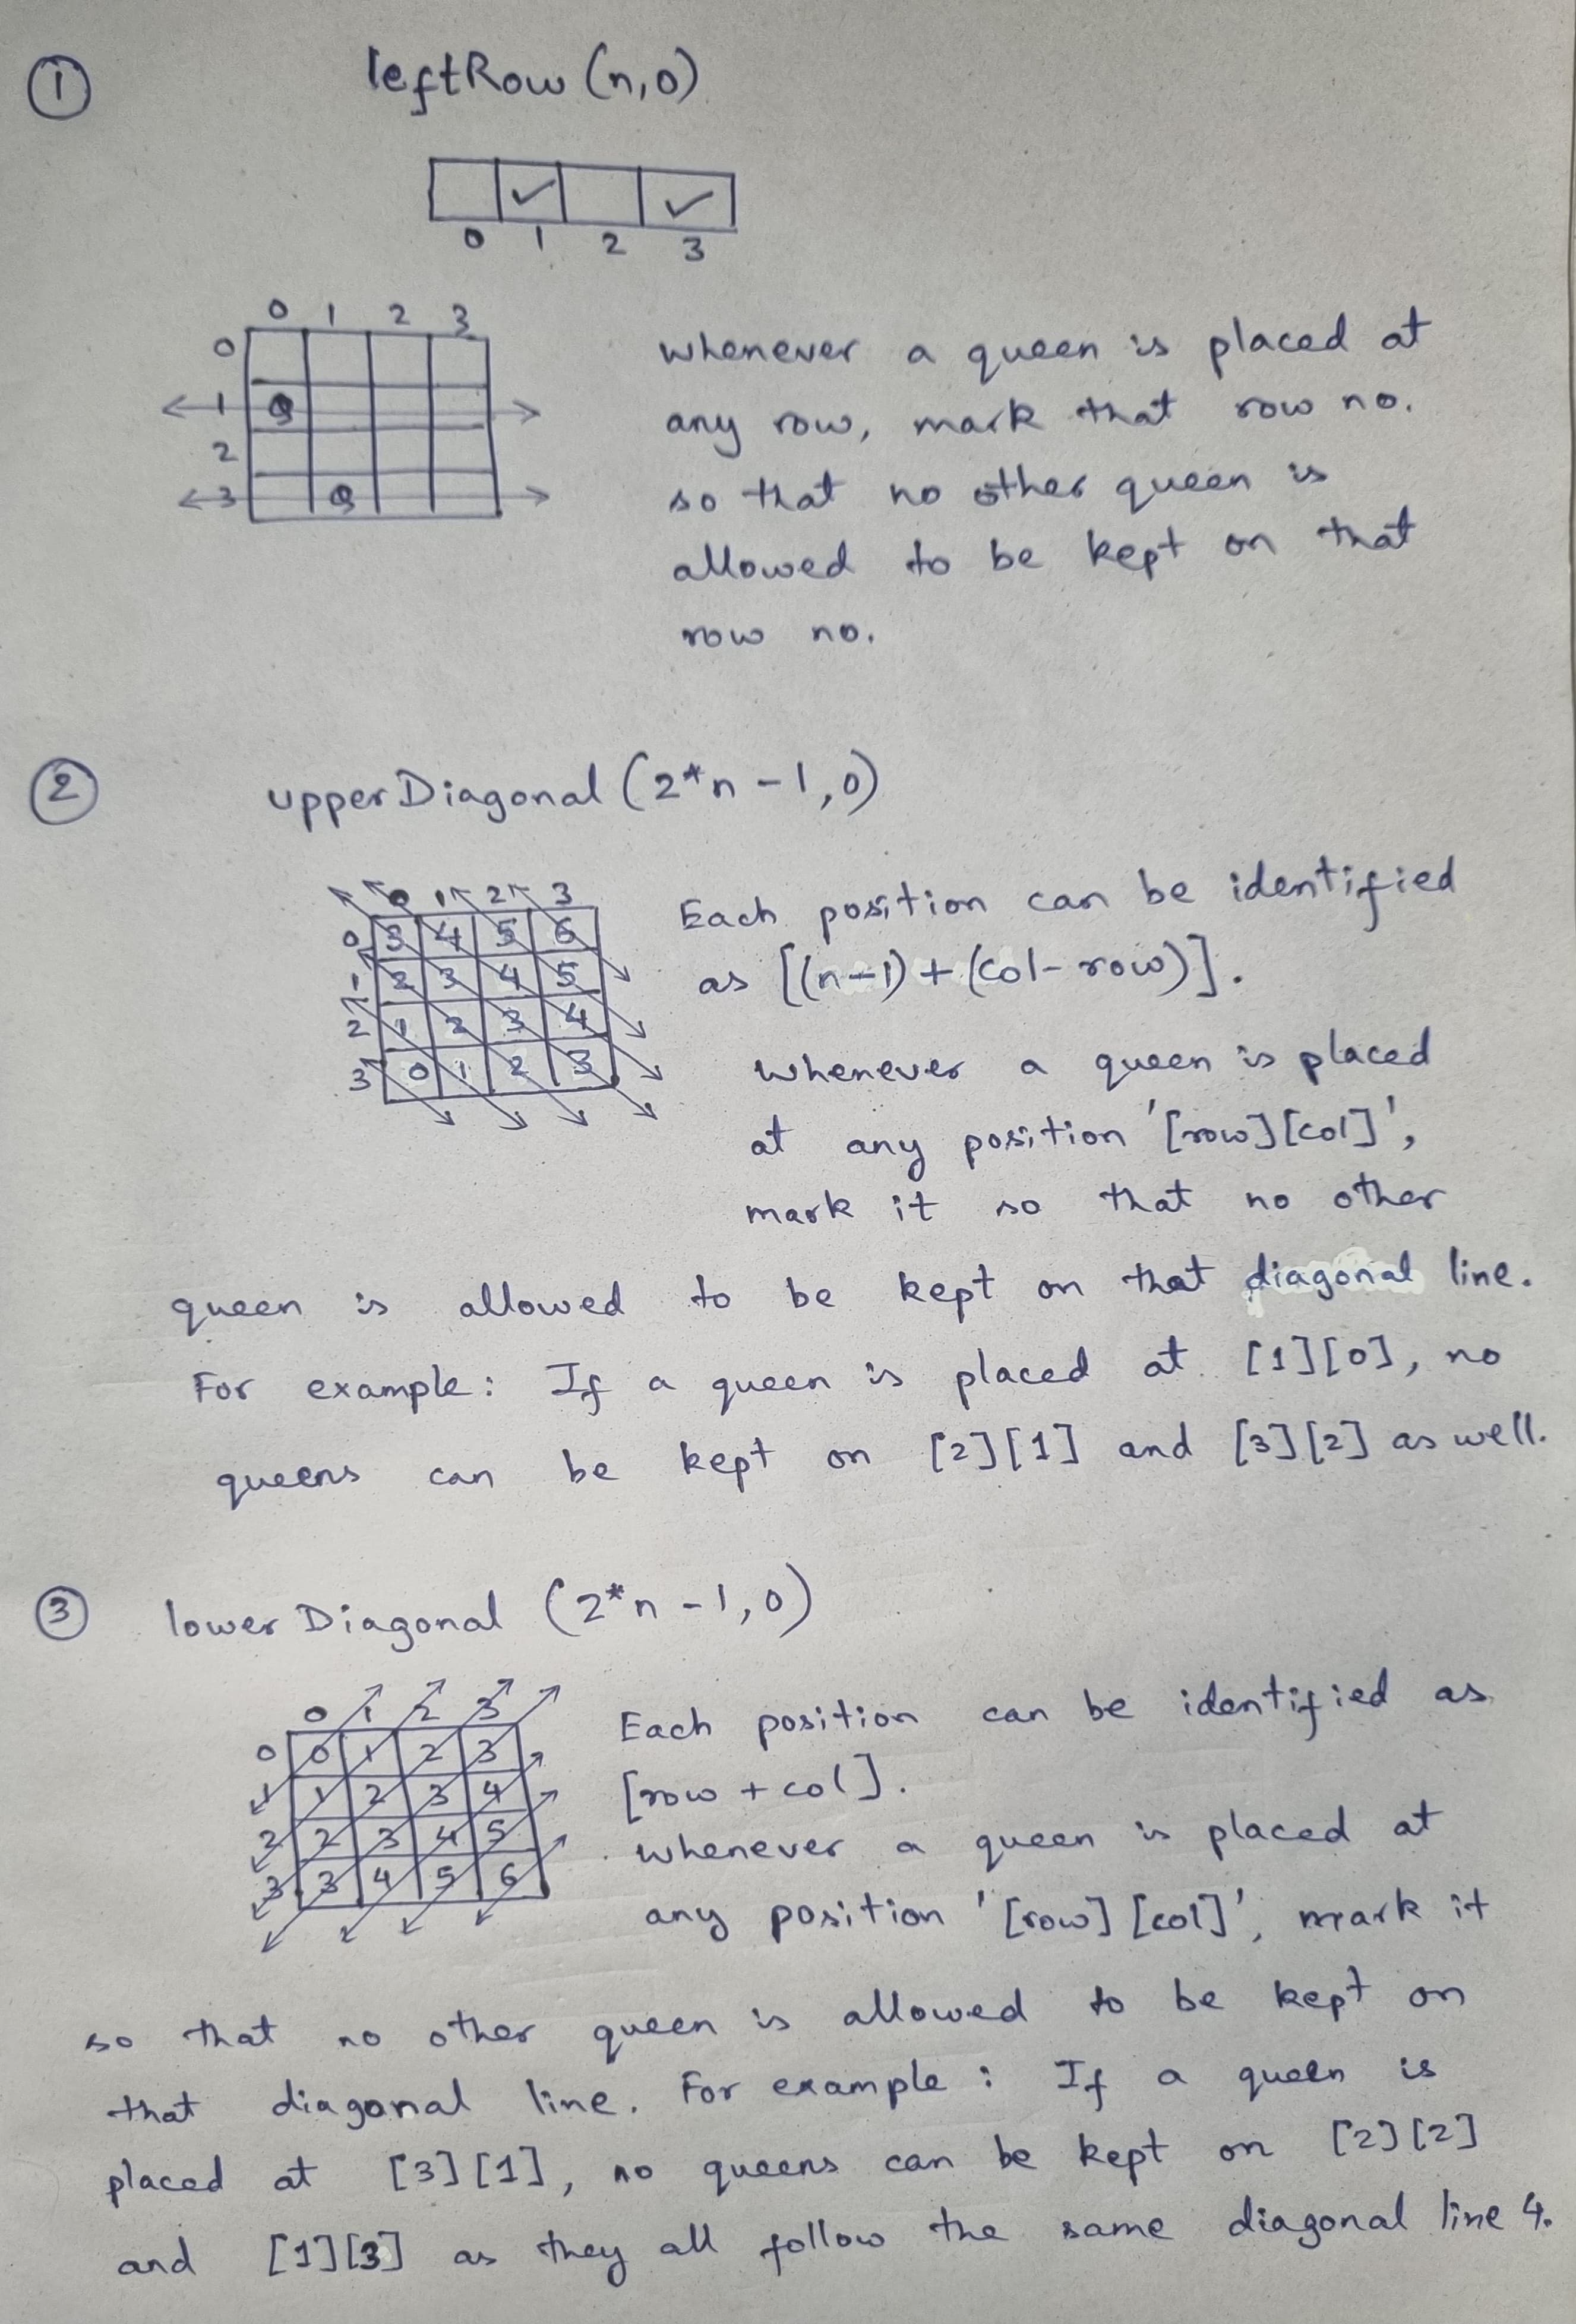 1
leftRow (n,0)
✓ ✓
0 1 2 3
0 1 2 3
0
1 Q
2
3 Q
whenever a queen is placed at
any row, mark that row no.
so that no other queen is
allowed to be kept on that
row no.
2
upperDiagonal (2*n-1,0)
0 1 2 3
0 3 4 5 6
1 2 3 4 5
2 1 2 3 4
3 0 1 2 3
Each position can be identified
as [(n-1)+(col-row)].
whenever a queen is placed
at any position '[row][col]',
mark it so that no other
queen is allowed to be kept on that diagonal line.
For example: If a queen is placed at [1][0], no
queens can be kept on [2][1] and [3][2] as well.
3
lower Diagonal (2*n-1,0)
0 1 2 3
0 0 1 2 3
1 1 2 3 4
2 2 3 4 5
3 3 4 5 6
Each position can be identified as
[row + col].
whenever a queen is placed at
any position '[row][col]', mark it
so that no other queen is allowed to be kept on
that diagonal line. For example: If a queen is
placed at [3][1], no queens can be kept on [2][2]
and [1][3] as they all follow the same diagonal line 4.